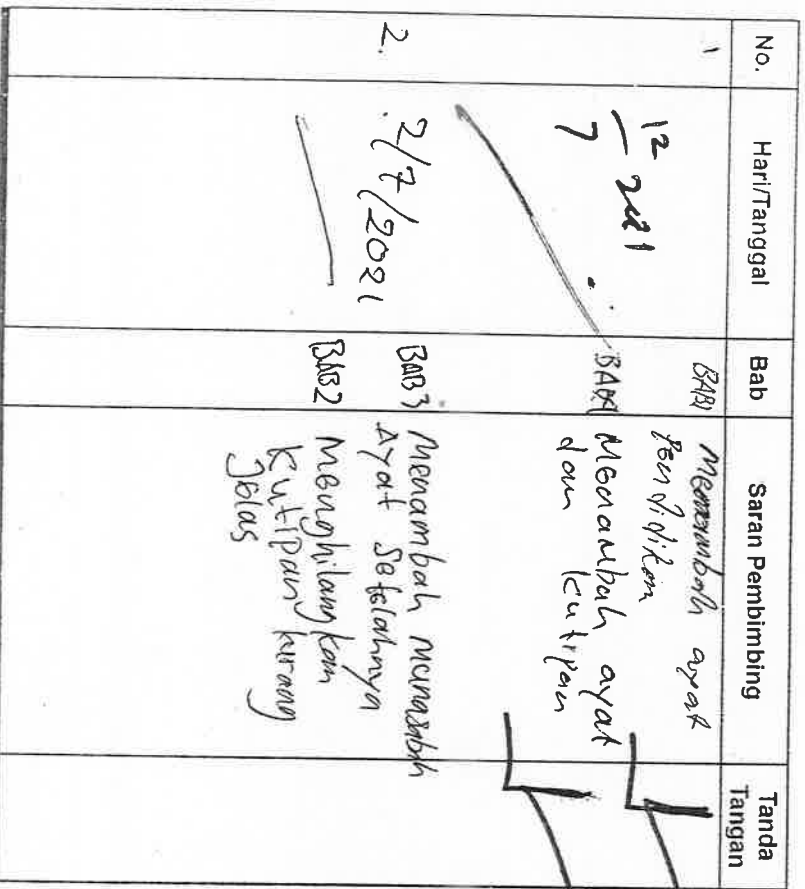 No. Hari/Tanggal Bab Saran Pembimbing Tanda Tangan
1 12/7 2021 BAB1 Menambah ayat
Pendidikan
BAB4 Menambah ayat
dan kutipan
2. 2/7/2021 BAB3 Menambah munasabah
Ayat Setelahnya
BAB2 Menghilangkan
Kutipan kurang
Jelas